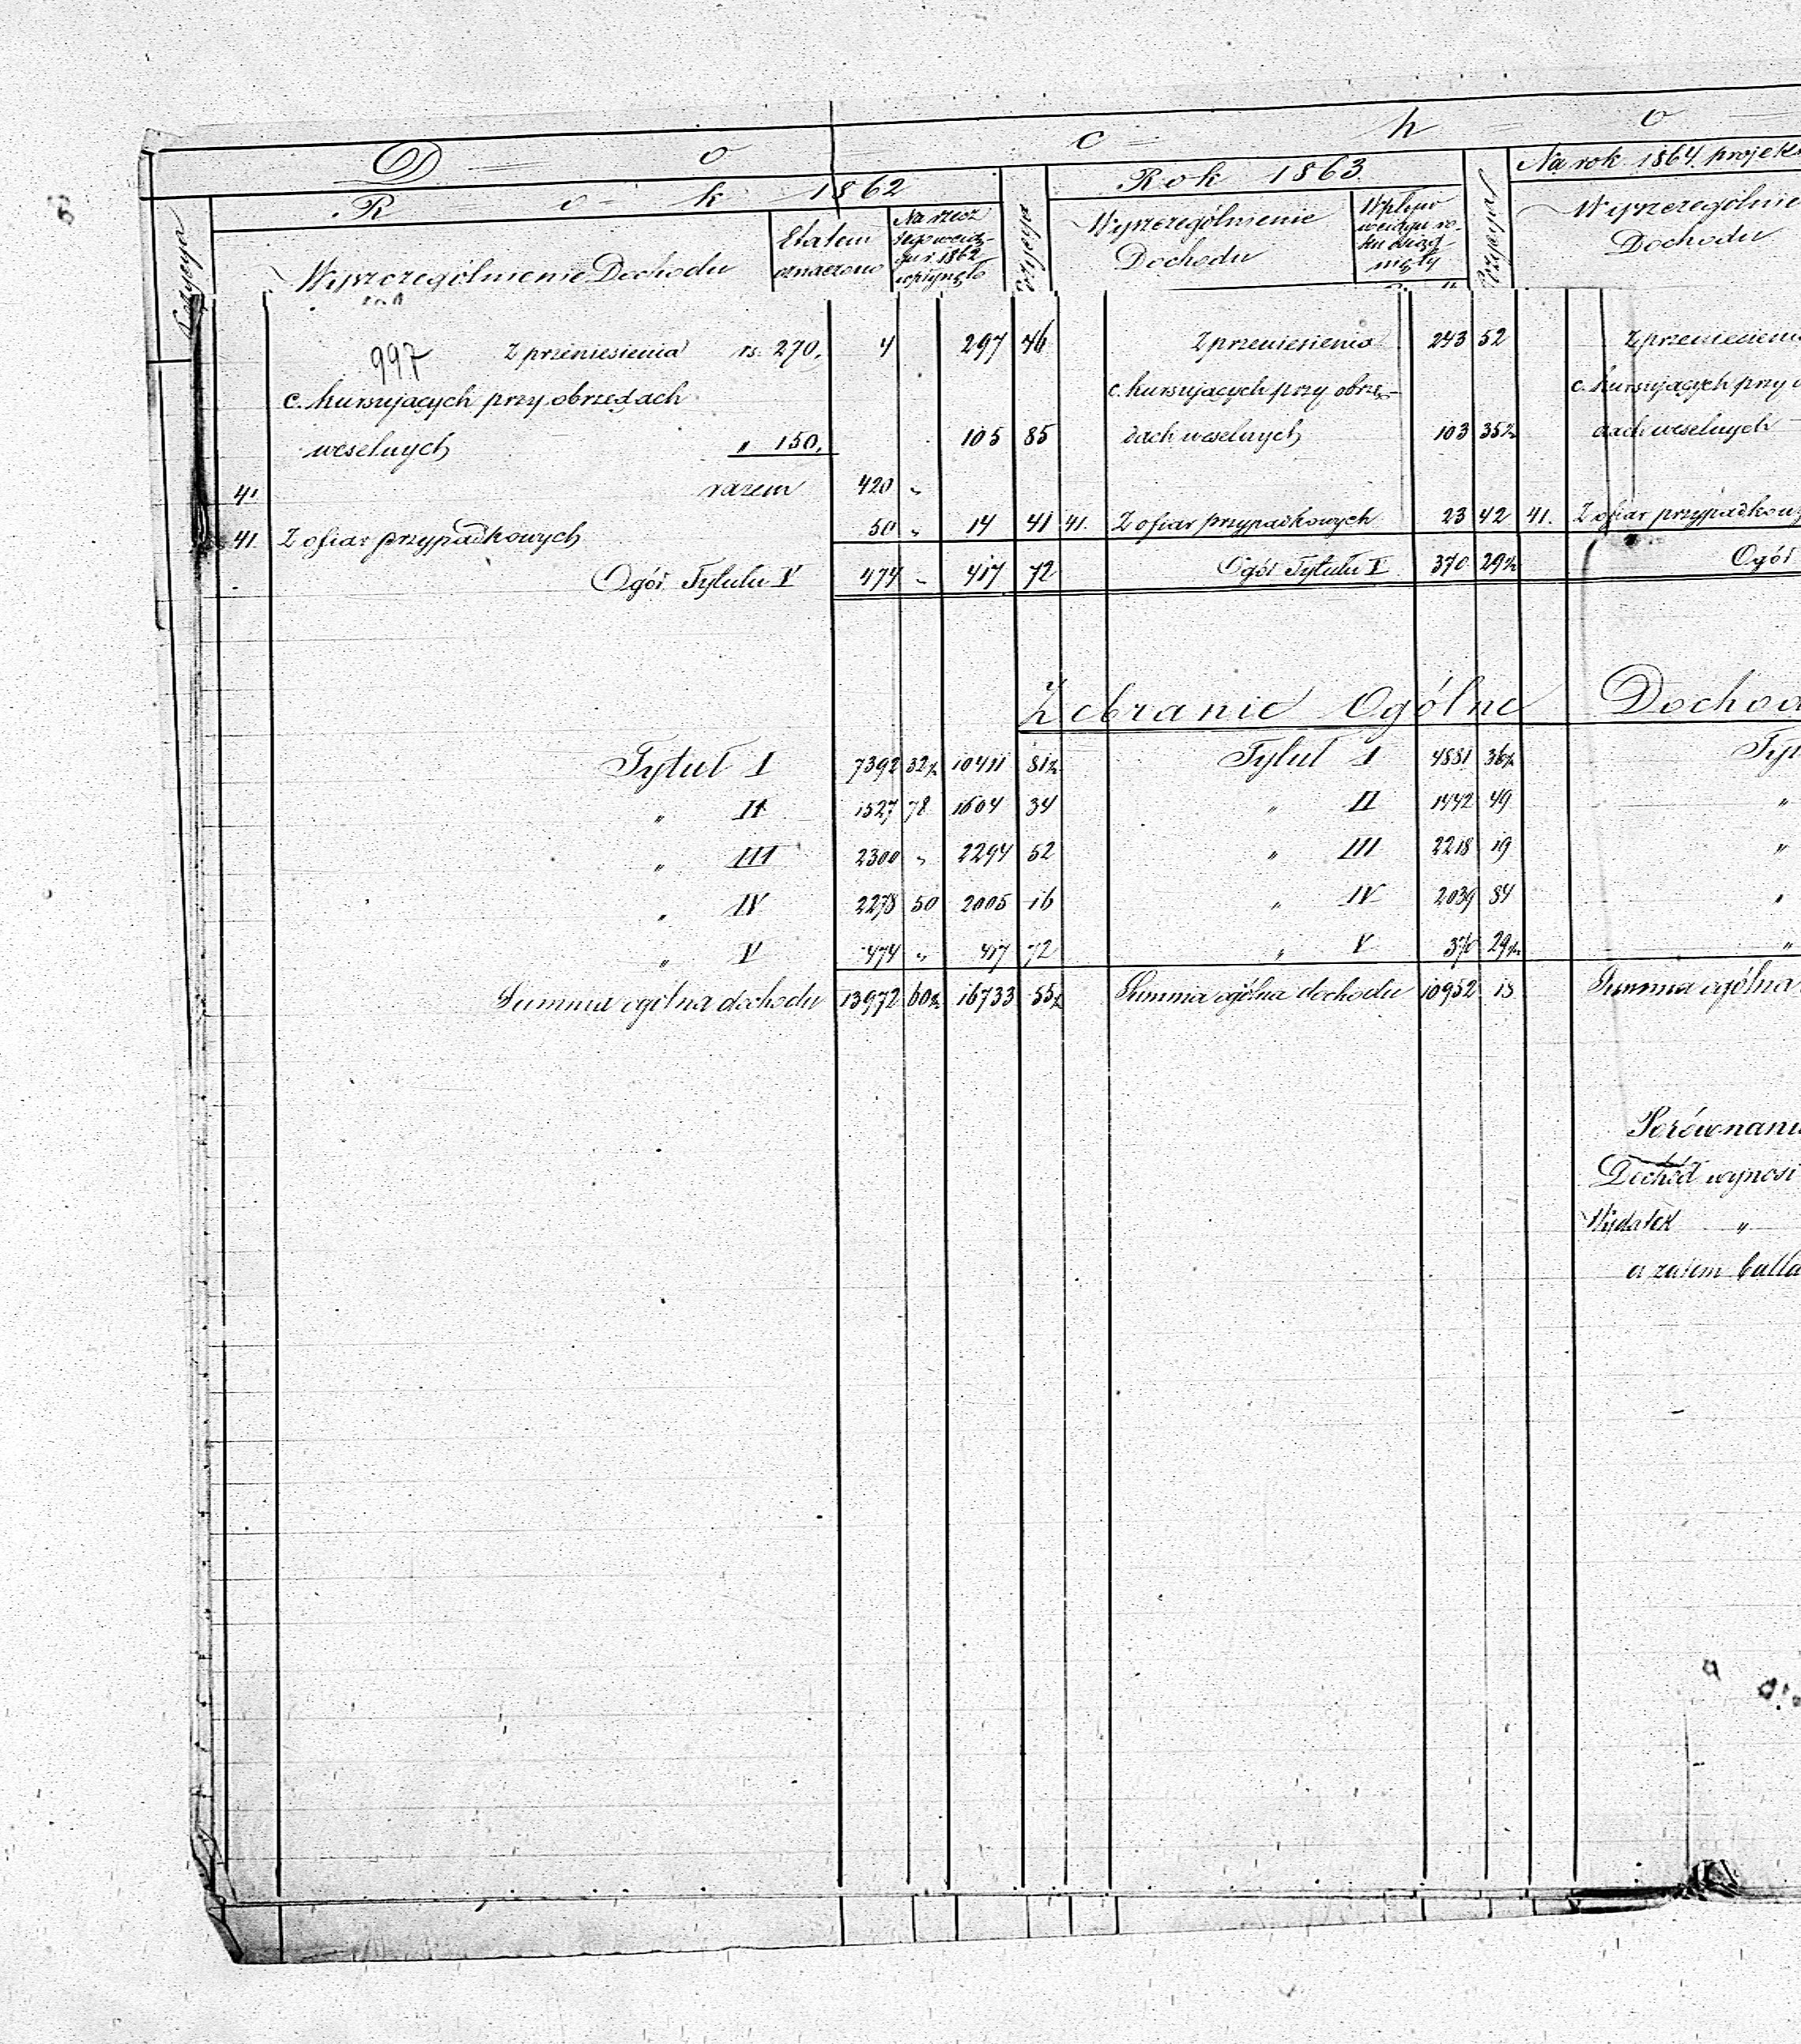 D o c h o
R o k 1862
Rok 1863
Na rok 1864 projekt
Pozycya
Wyszczególnienie Dochodu
Etatem
oznaczono
Na rzecz
tego
r. 1862
wpłynęło
Pozycya
Wyszczególnienie
Dochodu
Wpływ
Pozycya
Wyszczególnie
Dochodu
997 Z przeniesienia rs. 270. 4 297 46 Z przeniesienia 243 52 Z przeniesieni
c. kursujących przy obrzędach c. kursujących przy obrzę- c. kursujących przy
weselnych " 150. 105 85 dach weselnych 103 35½ dach weselnych
41 razem 420 "
41. Z ofiar przypadkowych 50 " 14 41 41. Z ofiar przypadkowych 23 42 41. Z ofiar przypadkowy
Ogół Tytułu V 474 " 417 72 Ogół Tytułu V 370 29½ Ogół
Zebranie Ogólne Dochod
Tytuł I 7392 32½ 10411 81½ Tytuł I 4881 36½ Ty
" II 1527 78 1604 34 " II 1442 49 "
" III 2300 " 2294 52 " III 2218 19 "
" IV 2278 50 2005 16 " IV 2039 84 "
" V 474 " 417 72 " V 370 29½ "
Summa ogólna dochodu 13972 60½ 16733 55½ Summa ogólna dochodu 10952 18 Summa ogólna
Porównani
Dochód wynosi
Wydatek "
a zatem balla